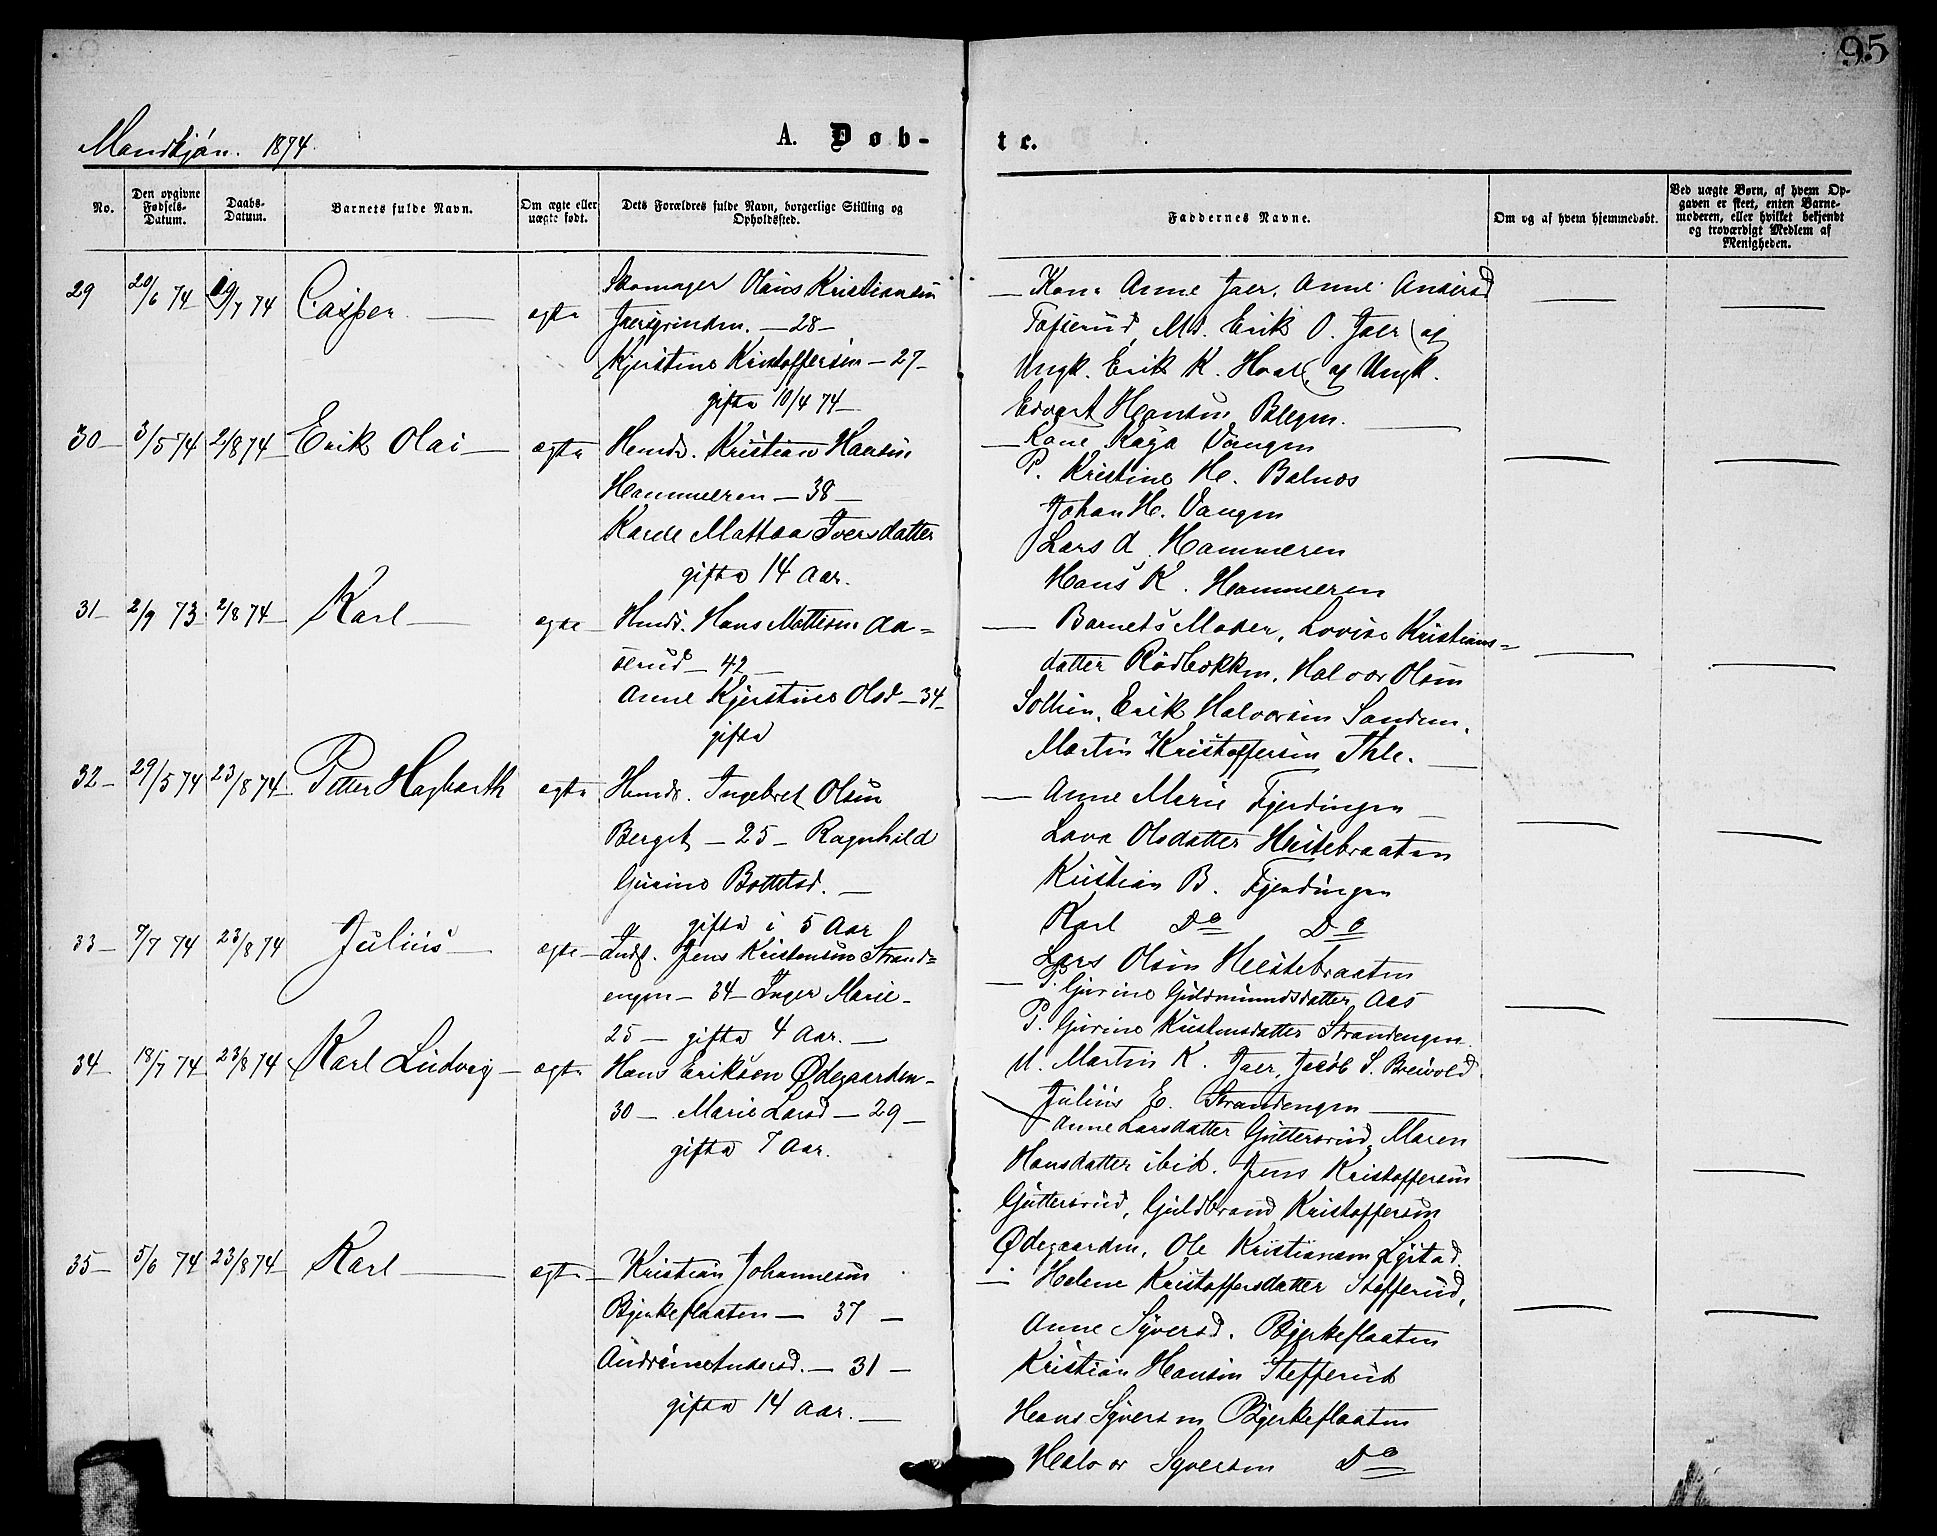 95
Mandkjøn. 1874.
A. Døb-
te.
No.
Den opgivne Fødsels-Datum.
Daabs-Datum.
Barnets fulde Navn.
Om ægte eller uægte født.
Dets Forældres fulde Navn, borgerlige Stilling og Opholdssted.
Faddernes Navne.
Om og af hvem hjemmedøbt.
Ved uægte Børn, af hvem Opgaven er skeet, enten Barnemoderen, eller hvilket bekjendt og troværdigt Medlem af Menigheden.
29 20/6 74 19/7 74 Casper — ægte
Skomager Olaus Kristiansen
Jaersgrinden. — 28 —
Kjerstine Kristoffersen — 27 —
gifte 10/4 74 —
— Kone Anne Jaer, Anne Andersd
Tofterud, M. Erik O. Jaer og
Ungk. Erik K. Hval, og Ungk.
Edvart Hansen Blegen. —
30 — 3/5 74 2/8 74 — Erik Olai — ægte
Husmd. Kristian Hansen
Hammeren — 38 —
Karde Mattea Iversdatter
gifte 14 Aar.
— Kone Kaja Vangen
P. Kristine H. Balnos
Johan H. Vangen
Lars A. Hammeren
Hans K. Hammeren
31 — 2/9 73 2/8 74 — Karl — ægte —
Husmd. Hans Mattesen Aa=
serud — 42 —
Anne Kjerstine Olsd — 34 —
gifte
— Barnets Moder, Lovise Kristians=
datter Rødbækken, Halvor Olsen
Sollien, Erik Halvorsen Sanden,
Martin Kristoffersen Ihle. —
32 — 29/5 74 23/8 74 — Petter Hagbarth ægte
Husmd. Ingebret Olsen
Berget — 25 — Ragnhild
Gurine Bottelsd. —
gifte i 5 Aar
— Anne Marie Fjerdingen —
Lava Olsdatter Hestebraaten
Kristian B. Fjerdingen
Karl Do Do
Lars Olsen Hestebraaten
33 — 9/7 74 23/8 74 Julius — ægte —
Inds. Jens Kristensen Strand=
engen — 34 — Inger Marie —
25 — gifte 4 Aar. —
— P. Gurine Guldmundsdatter Aas
P. Gurine Kristensdatter Strandengen.
U. Martin K. Jaer, Jacob S. Breivold
Julius E. Strandengen —
34 — 18/7 74 23/8 74 Karl Ludvig — ægte
Hans Eriksen Ødegaarden —
30 — Marie Larsd — 29 —
gifte 7 Aar.
Anne Larsdatter Guttersrud, Maren
Hansdatter ibid. Jens Kristoffersen
Guttersrud, Guldbrand Kristoffersen
Ødegaarden, Ole Kristiansen
35 — 5/6 74 23/8 74 — Karl — ægte —
Kristian Johannesen
Bjerkeflaaten — 37 —
Andrine Andersd. — 31 —
gifte 14 Aar. —
— Helene Kristoffersdatter Stefferud,
Anne Syversd. Bjerkeflaaten
Kristian Hansen Stefferud
Hans Syversen Bjerkeflaaten
Halvor Syversen Do